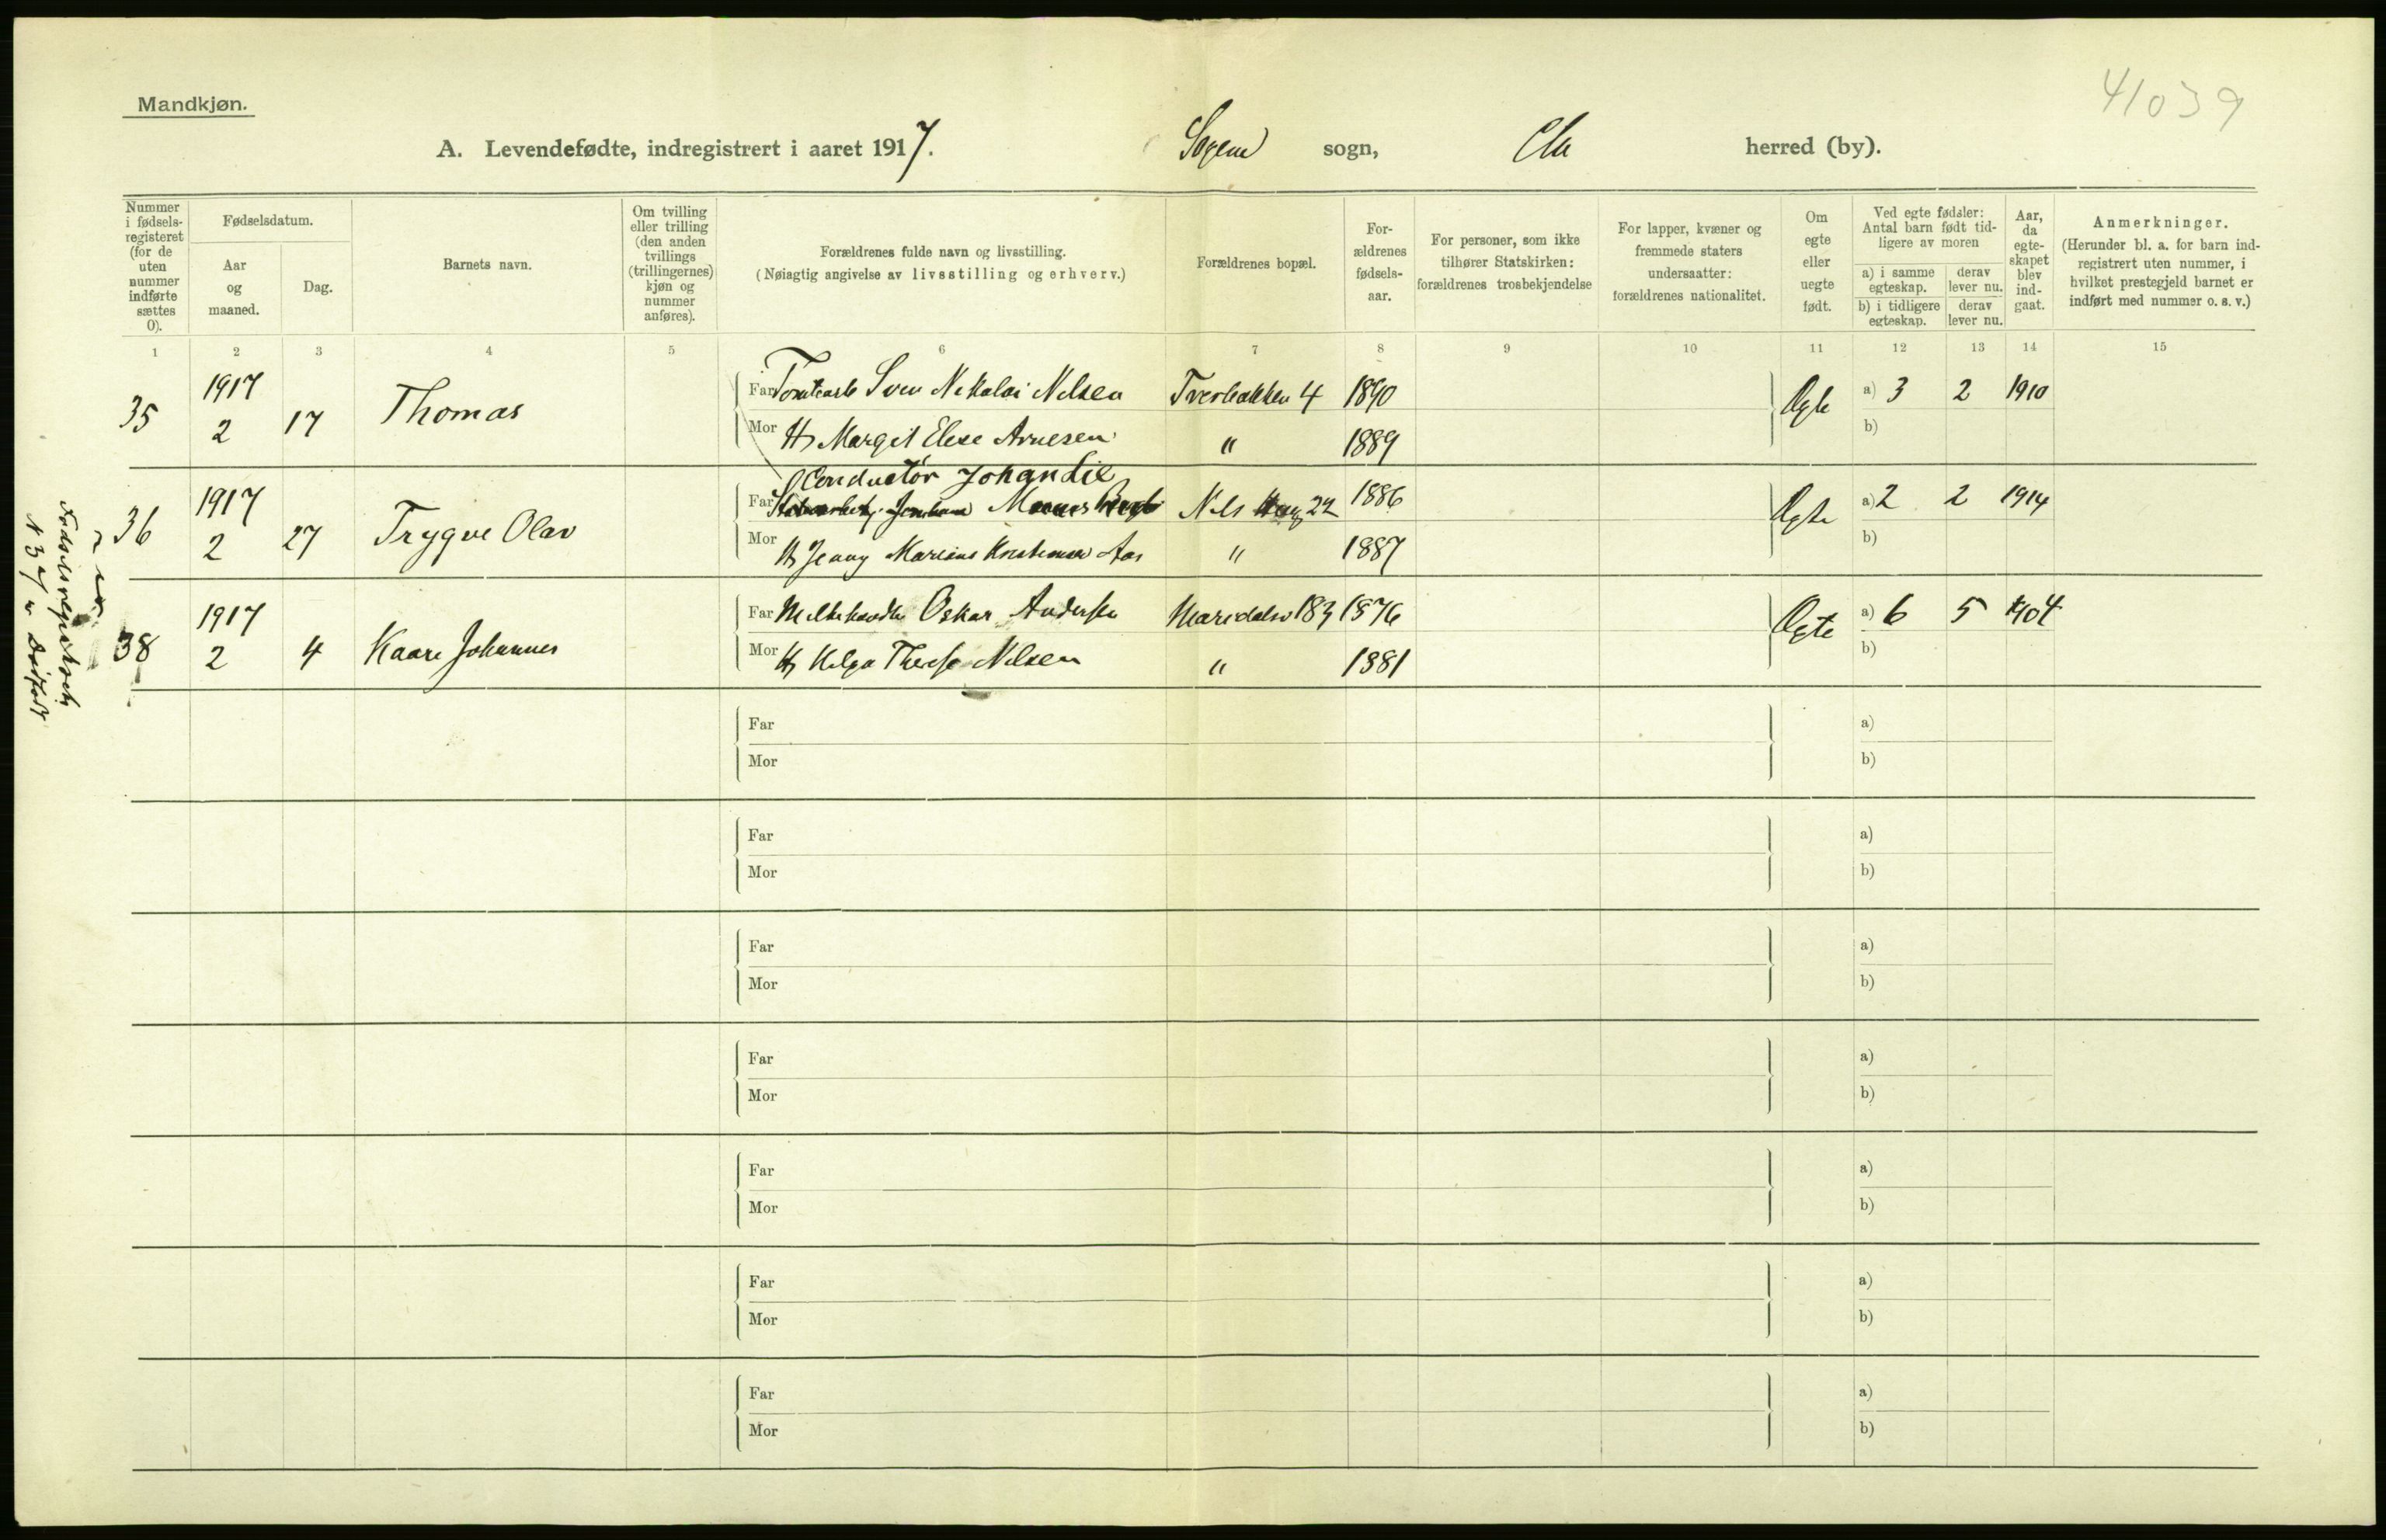 41039
Mandkjøn.
A. Levendefødte, indregistrert i aaret 1917. Sagene sogn, Cha herred (by).
Nummer i fødsels-registeret (for de uten nummer indførte sættes 0).
Fødselsdatum.
Aar og maaned.
Dag.
Barnets navn.
Om tvilling eller trilling (den anden tvillings (trillingernes) kjøn og nummer anføres).
Forældrenes fulde navn og livsstilling.
(Nøiagtig angivelse av livsstilling og erhverv.)
Forældrenes bopæl.
For-ældrenes fødsels-aar.
For personer, som ikke tilhører Statskirken: forældrenes trosbekjendelse
For lapper, kvæner og fremmede staters undersaatter: forældrenes nationalitet.
Om egte eller uegte født.
Ved egte fødsler: Antal barn født tid-ligere av moren
a) i samme egteskap.
derav lever nu.
b) i tidligere egteskap.
derav lever nu.
Aar, da egte-skapet blev ind-gaat.
Anmerkninger.
(Herunder bl. a. for barn ind-registrert uten nummer, i hvilket prestegjeld barnet er indført med nummer o. s. v.)
1 2 3 4 5 6 7 8 9 10 11 12 13 14 15
35 1917 2 17 Thomas
Far Sven Nikolai Nilsen Tverbakken 4 1890 Egte a) 3 2 1910
Mor H Margit Elise Arnesen " 1889 b)
Conductør Johan Lie
36 1917 2 27 Trygve Olav
Far Nils 22 1886 Egte a) 2 2 1914
Mor H Jenny Marine Kristensen Aas " 1887 b)
38 1917 2 4 Kaare Johannes
Far Melkehandler Oskar Andersen Maridalsv 183 1876 Egte a) 6 5 1904
Mor H Helga Therese Nilsen " 1881 b)
Fødselsregisteret
N 37 er Dødfødt
Far a)
Mor b)
Far a)
Mor b)
Far a)
Mor b)
Far a)
Mor b)
Far a)
Mor b)
Far a)
Mor b)
Far a)
Mor b)